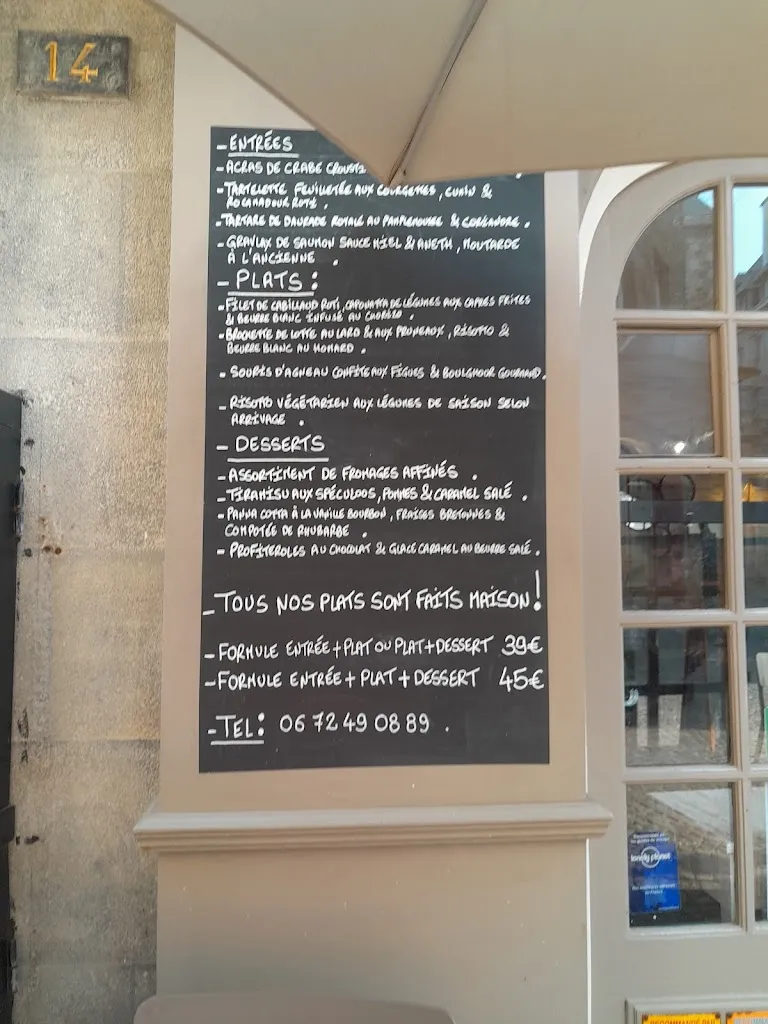 14
- ENTRÉES
- ACRAS DE CRABE
- TARTELETTE FEUILLETÉE AUX COURGETTES, CUMIN &
ROCAMADOUR ROTI.
- TARTARE DE DAURADE ROYALE AU PAMPLEMOUSSE & CORIANDRE.
- GRAVLAX DE SAUMON SAUCE MIEL & ANETH, MOUTARDE
À L'ANCIENNE.
- PLATS:
- FILET DE CABILLAUD ROTI, CAPONATTA DE LÉGUMES AUX CAPRES FRITES
& BEURRE BLANC INFUSÉ AU CHORIZO.
- BROCHETTE DE LOTTE AU LARD & AUX PRUNEAUX, RISOTTO &
BEURRE BLANC AU HOMARD.
- SOURIS D'AGNEAU CONFITE AUX FIGUES & BOULGHOUR GOURMAND.
- RISOTTO VÉGÉTARIEN AUX LÉGUMES DE SAISON SELON
ARRIVAGE.
- DESSERTS
- ASSORTIMENT DE FROMAGES AFFINÉS.
- TIRAMISU AUX SPÉCULOOS, POMMES & CARAMEL SALÉ.
- PANNA COTTA À LA VANILLE BOURBON, FRAISES BRETONNES &
COMPOTÉE DE RHUBARBE.
- PROFITEROLES AU CHOCOLAT & GLACE CARAMEL AU BEURRE SALÉ.
- TOUS NOS PLATS SONT FAITS MAISON!
- FORMULE ENTRÉE + PLAT OU PLAT + DESSERT 39€
- FORMULE ENTRÉE + PLAT + DESSERT 45€
- TEL: 06 72 49 08 89.
lonely planet
RECOMMANDÉ PAR